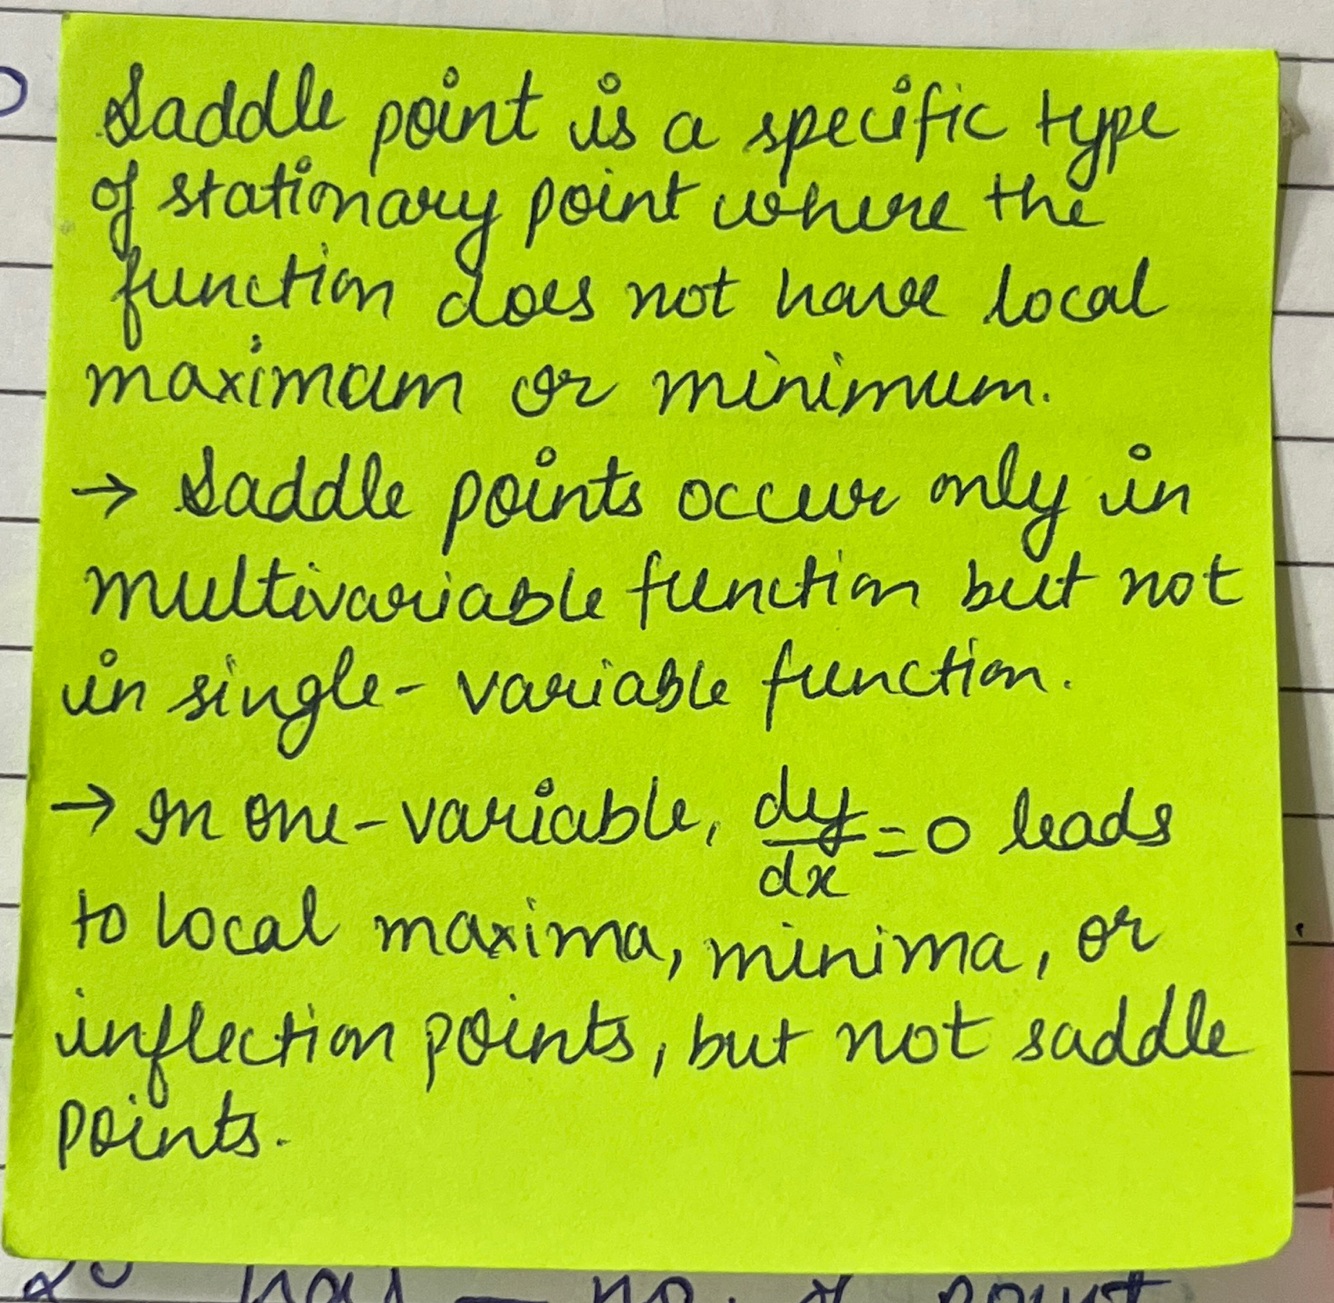 Saddle point is a specific type
of stationary point where the
function does not have local
maximum or minimum.
→ Saddle points occur only in
multivariable function but not
in single-variable function.
→ In one-variable, dy/dx = 0 leads
to local maxima, minima, or
inflection points, but not saddle
points.
no. of point